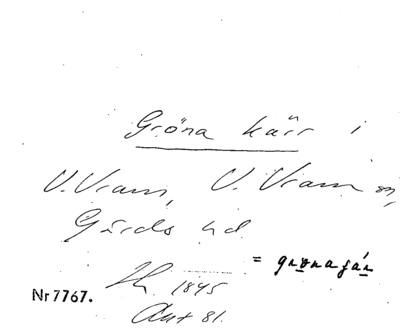 Gröna kärr i
V. Vram, V. Vram sn,
Gärds hd
= grönajár
Nr 7767.
1845
Akt 81.